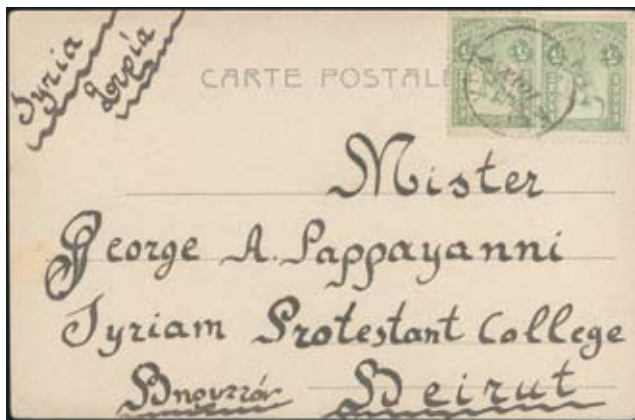 Syria
Συρία
CARTE POSTALE
Mister
George A. Pappayanni
Syriam Protestant College
Βηρυττόν Beirut